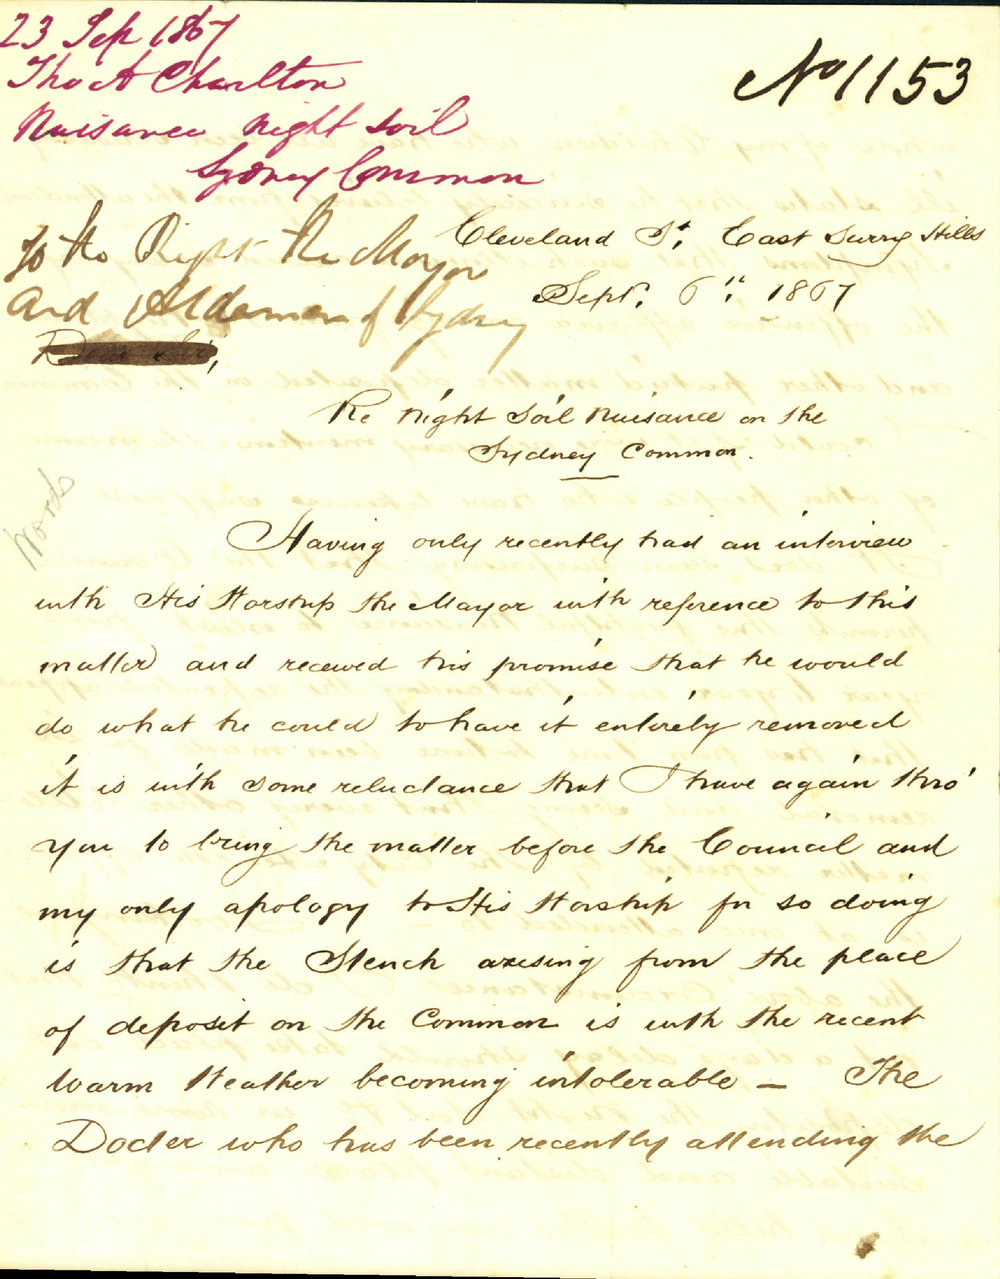 23 Sep 1867
Thos A Charlton
Nuisance Night Soil
Sydney Common
No 1153
To the Right The Mayor
and Aldermen of Sydney
Dear Sir,
Cleveland St. East Surry Hills
Sept. 6th 1867
Re Night Soil Nuisance on the
Sydney Common.
Words
Having only recently had an interview
with His Worship the Mayor with reference to this
matter and received his promise that he would
do what he could to have it entirely removed
it is with some reluctance that I have again thro'
you to bring the matter before the Council and
my only apology to His Worship for so doing
is that the Stench arising from the place
of deposit on the Common is with the recent
warm Weather becoming intolerable — The
Docter who has been recently attending the